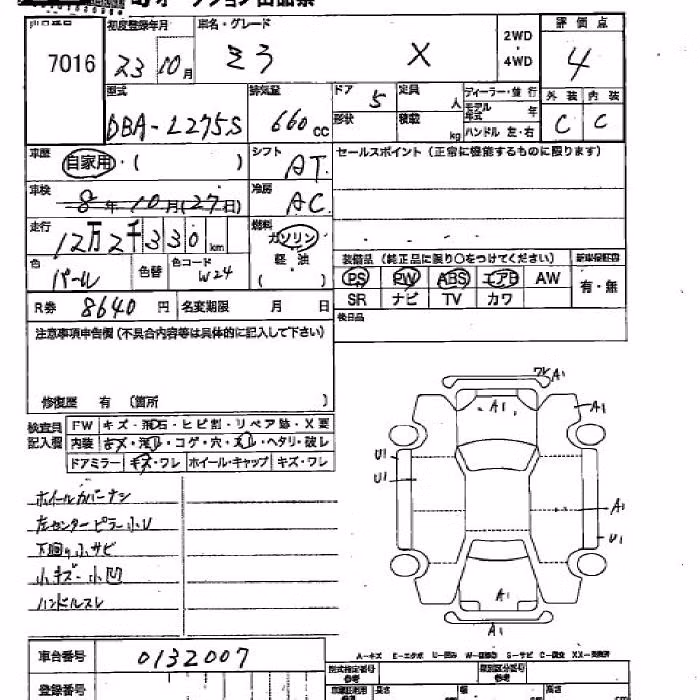 オークション出品票
7016
初度登録年月
23年10月
車名・グレード
ミラ X
2WD・4WD
評価点
4
型式
DBA-L275S
排気量
660cc
ドア 5
定員 人
形状
積載 kg
ディーラー・並行
モデル年式 年
ハンドル 左・右
外装 内装
C C
車歴 自家用・( )
シフト AT
セールスポイント (正常に機能するものに限ります)
車検 8年10月(27日)
冷房 AC
走行 12万2千330km
燃料 ガソリン 軽油 ( )
色 パール
色替
色コード W24
装備品 (純正品に限り○をつけてください)
新車保証書
PS PW ABS エアB AW
有・無
SR ナビ TV カワ
R券 8640円
名変期限 月 日
後日品
注意事項申告欄 (不具合内容等は具体的に記入して下さい)
修復歴 有 (箇所 )
検査員記入欄
FW キズ・飛石・ヒビ割・リペア跡・X要
内装 キズ・汚れ・コゲ・穴・スレ・ヘタリ・破レ
ドアミラー キズ・ワレ ホイール・キャップ キズ・ワレ
ホイールカバーナシ
左センターピラー小U
下回り小サビ
小キズ・小凹
ハンドルスレ
A1
A1
A1
U1
U1
A1
U1
A1
A1
車台番号 0132007
登録番号
型式指定番号 参考
類別区分番号 参考
長さ
幅
高さ